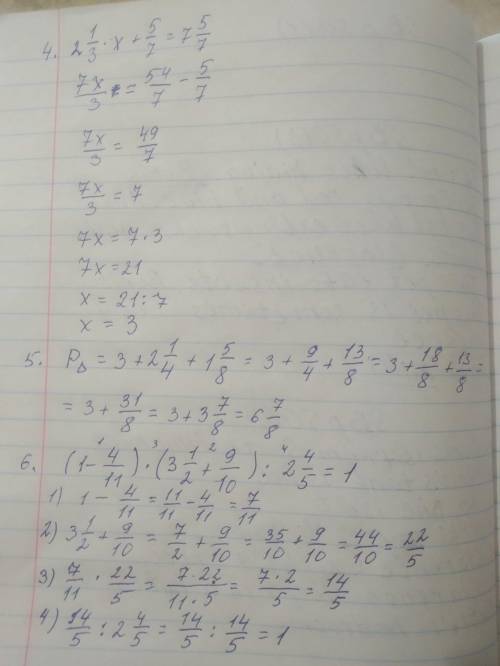 4. 2 1/3 · x + 5/7 = 7 5/7
7x/3 = 54/7 - 5/7
7x/3 = 49/7
7x/3 = 7
7x = 7 · 3
7x = 21
x = 21 : 7
x = 3
5. P△ = 3 + 2 1/4 + 1 5/8 = 3 + 9/4 + 13/8 = 3 + 18/8 + 13/8 =
= 3 + 31/8 = 3 + 3 7/8 = 6 7/8
6. (1 - 4/11) · (3 1/2 + 9/10) : 2 4/5 = 1
1) 1 - 4/11 = 11/11 - 4/11 = 7/11
2) 3 1/2 + 9/10 = 7/2 + 9/10 = 35/10 + 9/10 = 44/10 = 22/5
3) 7/11 · 22/5 = 7·22/11·5 = 7·2/5 = 14/5
4) 14/5 : 2 4/5 = 14/5 : 14/5 = 1